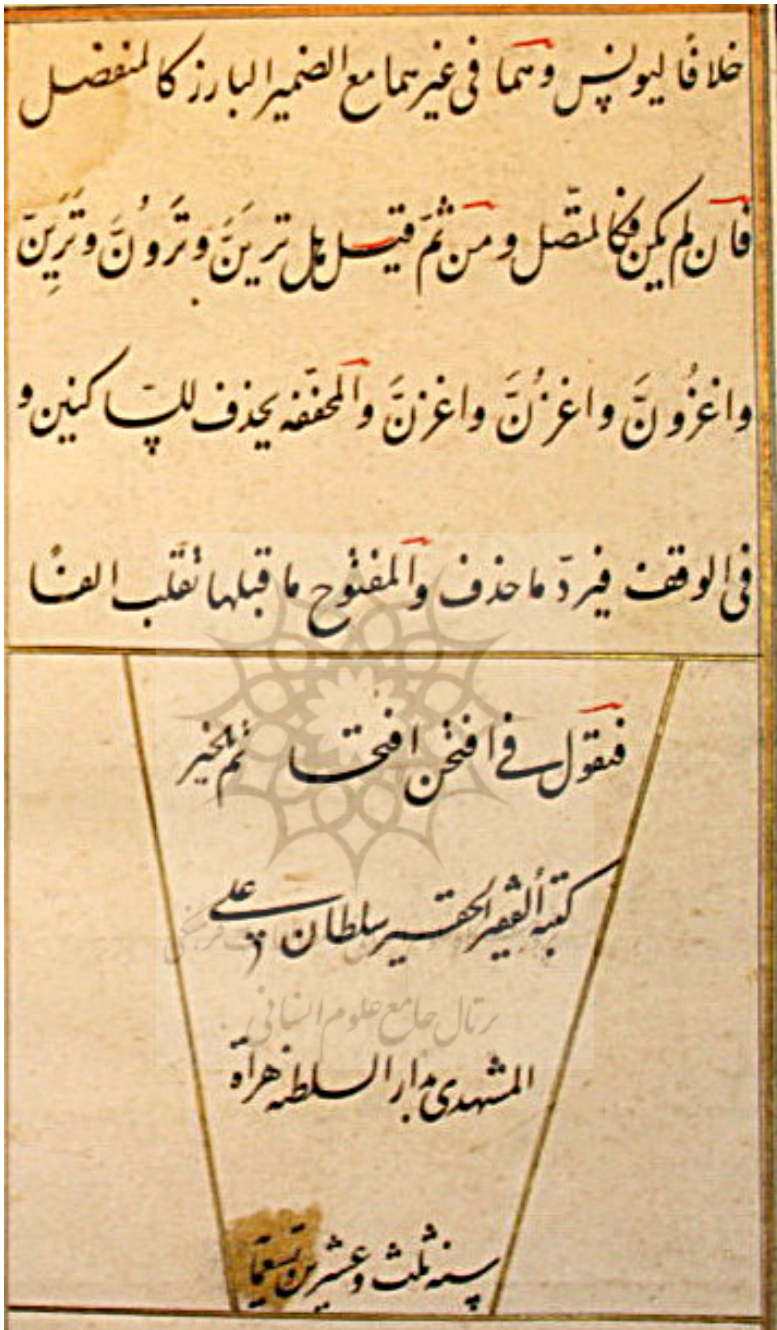 خلافًا ليونس وهما فى غيرهما مع الضمير البارز كالمنفصل
فان لم يكن فكالمتّصل ومن ثمّ قيل هل ترينَّ وترَوُنَّ وترَيِنّ
واغزُونَّ واغزُنَّ واغزِنَّ والمخففه يحذف للساكنين و
فى الوقف فيردّ ما حذف والمفتوح ما قبلها تقلب الفًا
فتقول في افتحن افتحا تم بالخير
كتبه الفقير الحقير سلطان علي
پرتال جامع علوم انسانی
المشهدى بدار السلطنه هراة
سنه ثلث وعشرين وتسعمائة